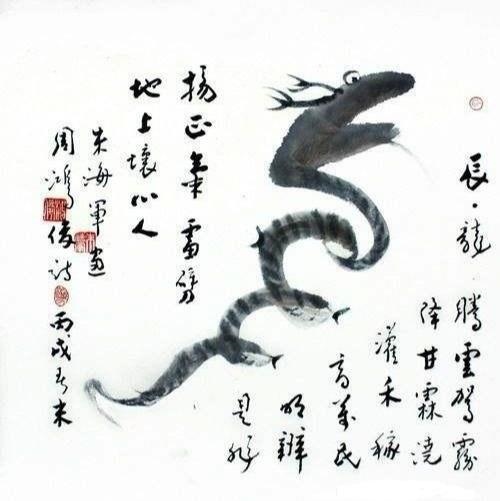 辰·龍
騰雲駕霧
降甘霖澆
灌禾稼
高萬民
明辨
是非
揚正氣 雷劈
地上壞心人
朱海軍画
周鴻俊詩 丙戌春末